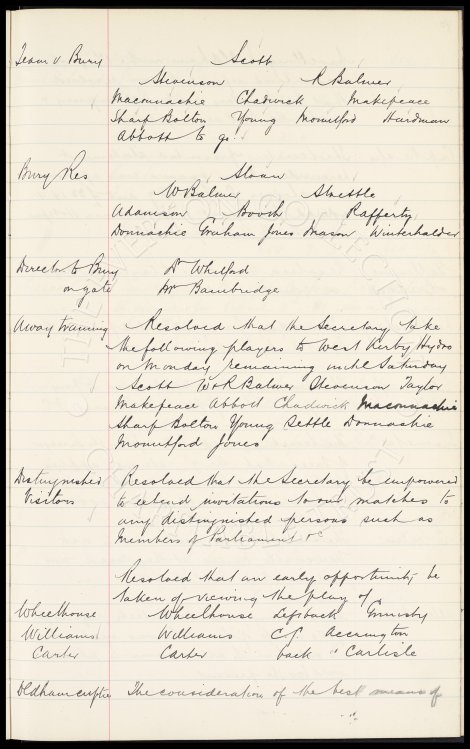 Team v Bury Scott
Stevenson R Balmer
Maconnachie Chadwick Makepeace
Sharp Bolton Young Mountford Hardman
Abbott to go.
Bury Res Sloan
W Balmer Strettle
Adamson Booth Rafferty
Donnachie Graham Jones Mason Winterhalder
Director to Bury Dr Whitford
on gate Mr Bainbridge
Away training Resolved that the Secretary take
the following players to West Kirby Hydro
on Monday remaining until Saturday
Scott W & R Balmer Stevenson Taylor
Makepeace Abbott Chadwick Maconnachie
Sharp Bolton Young Settle Donnachie
Mountford Jones
Distinguished Resolved that the Secretary be empowered
Visitors to extend invitations to our matches to
any distinguished persons such as
Members of Parliament &c
Resolved that an early opportunity be
taken of viewing the play of
Wheelhouse Wheelhouse Left back Grimsby
Williams Williams C.f. Accrington
Carter Carter back " Carlisle
Oldham cup tie The consideration of the best means of